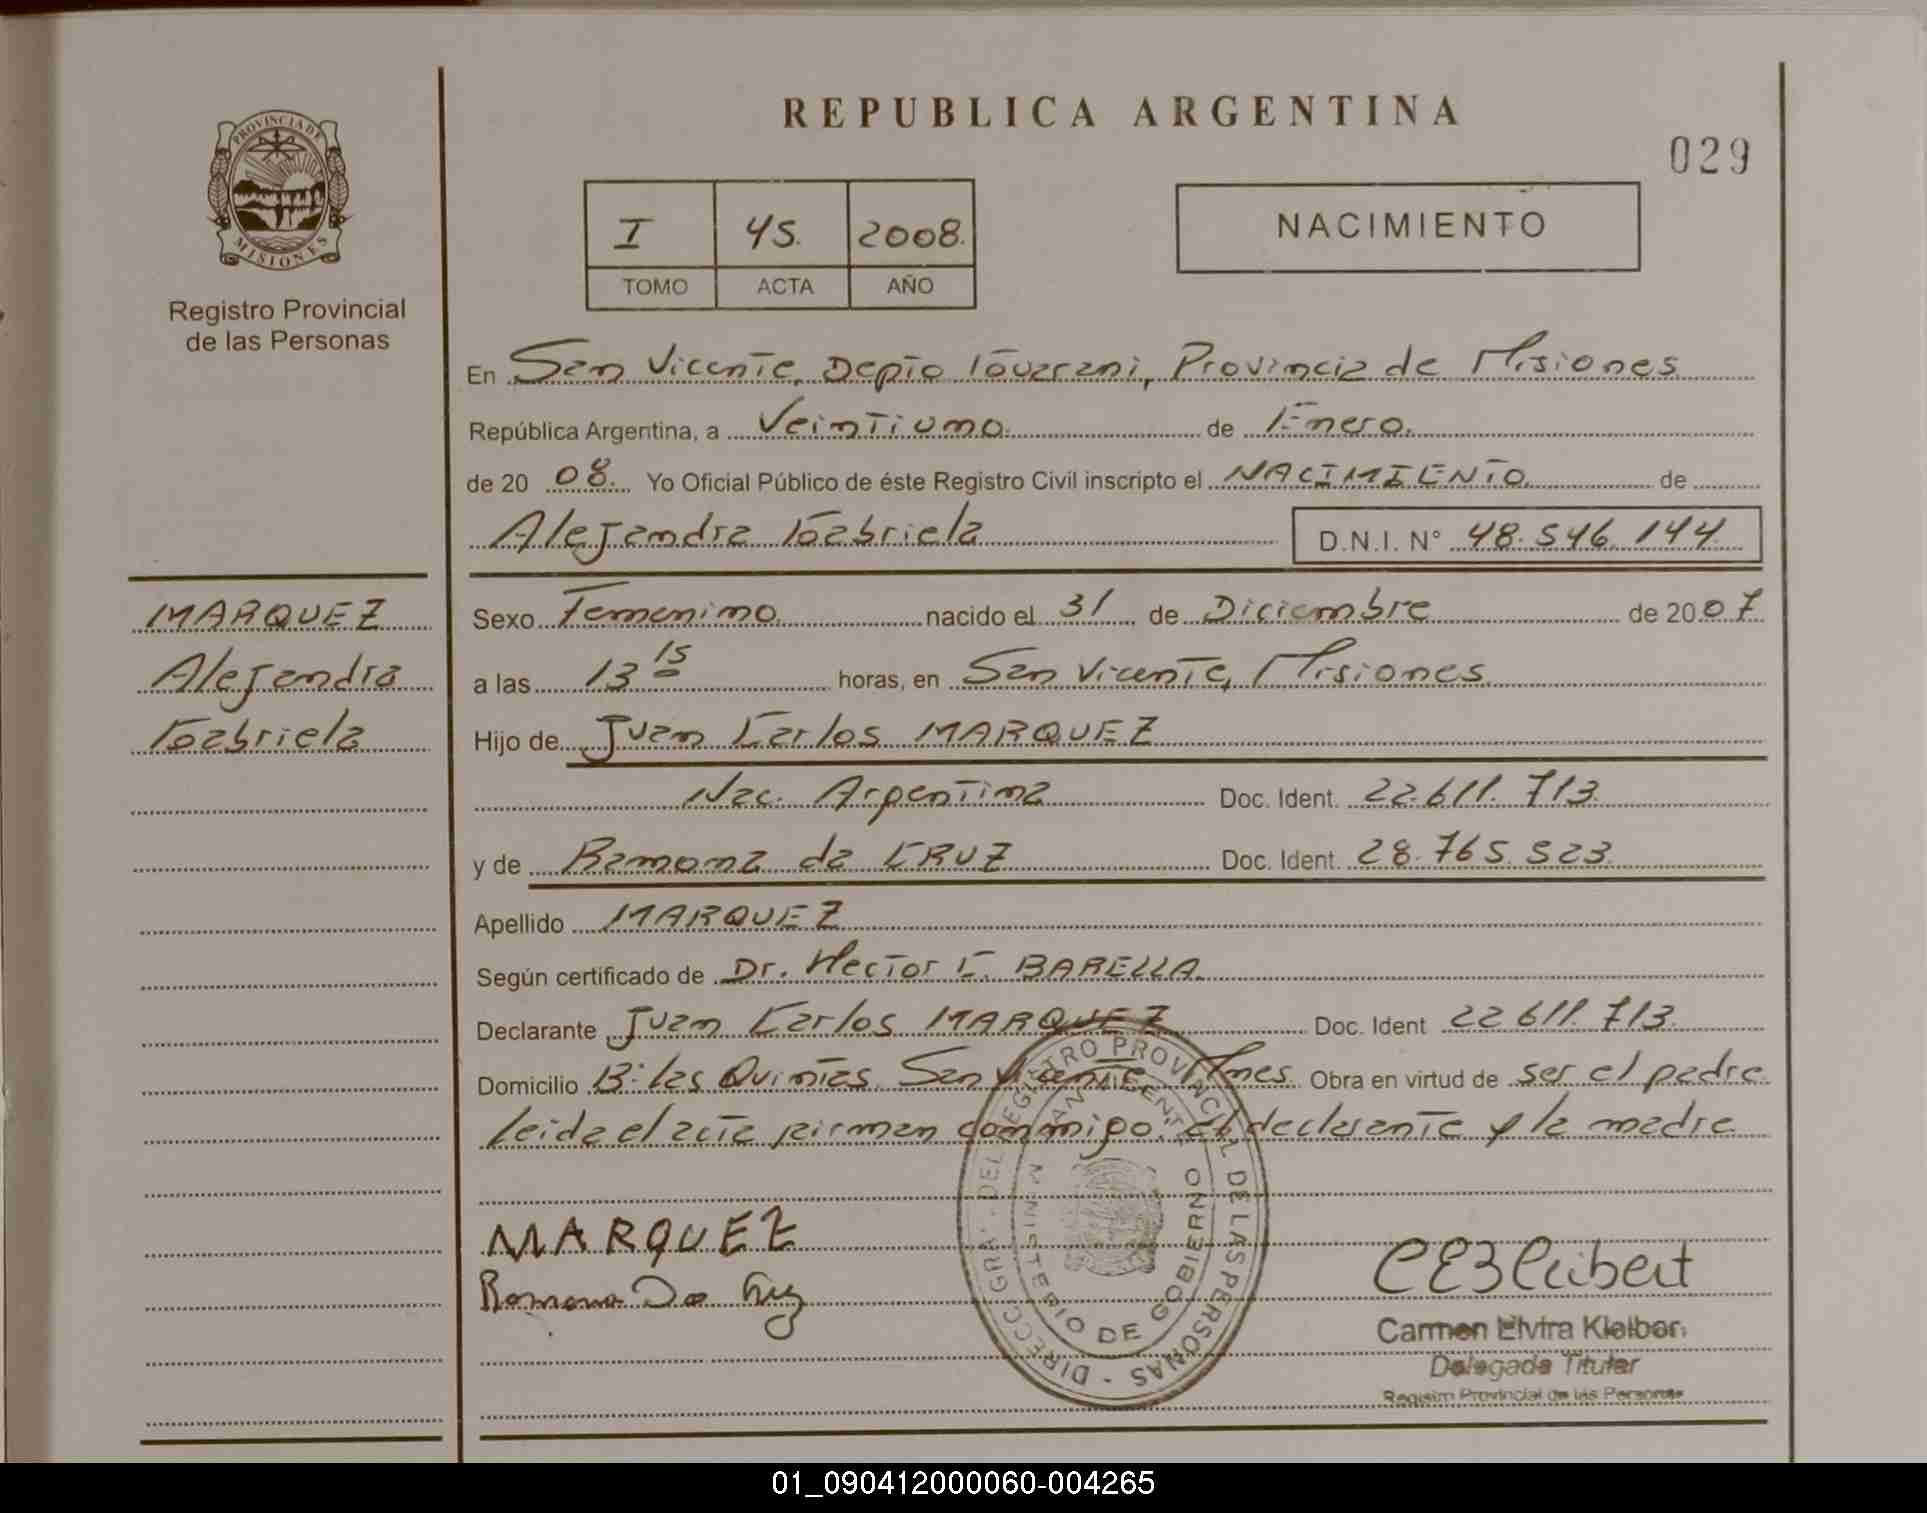 REPUBLICA ARGENTINA
029
PROVINCIA DE
MISIONES
Registro Provincial
de las Personas
I 45. 2008.
TOMO ACTA AÑO
NACIMIENTO
En San Vicente, Depto Guaraní, Provincia de Misiones
República Argentina, a Veintiuno. de Enero.
de 20 08. Yo Oficial Público de éste Registro Civil inscripto el NACIMIENTO de
Alejandra Gabriela
D.N.I. N° 48.546.144.
MARQUEZ
Alejandra
Gabriela
Sexo Femenino. nacido el 31 de Diciembre de 2007
a las 13 15 horas, en San Vicente, Misiones
Hijo de Juan Carlos MARQUEZ
Nac. Argentina Doc. Ident. 22.611.713.
y de Ramona da CRUZ Doc. Ident. 28.765.523.
Apellido MARQUEZ
Según certificado de Dr. Hector C. BARELLA
Declarante Juan Carlos MARQUEZ Doc. Ident 22 611.713.
Domicilio B: las Quintas San Vicente Mnes. Obra en virtud de ser el padre
Leida el acta firman conmigo: el declarante y la madre
DIRECC. GRAL. DEL REGISTRO PROVINCIAL DE LAS PERSONAS
SAN VICENTE
MINISTERIO DE GOBIERNO
MARQUEZ
Ramona Da Cruz
Carmen Elvira Kleiber
Delegada Titular
Registro Provincial de las Personas
01_090412000060-004265